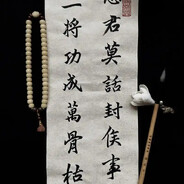 君莫話封侯事
一将功成萬骨枯